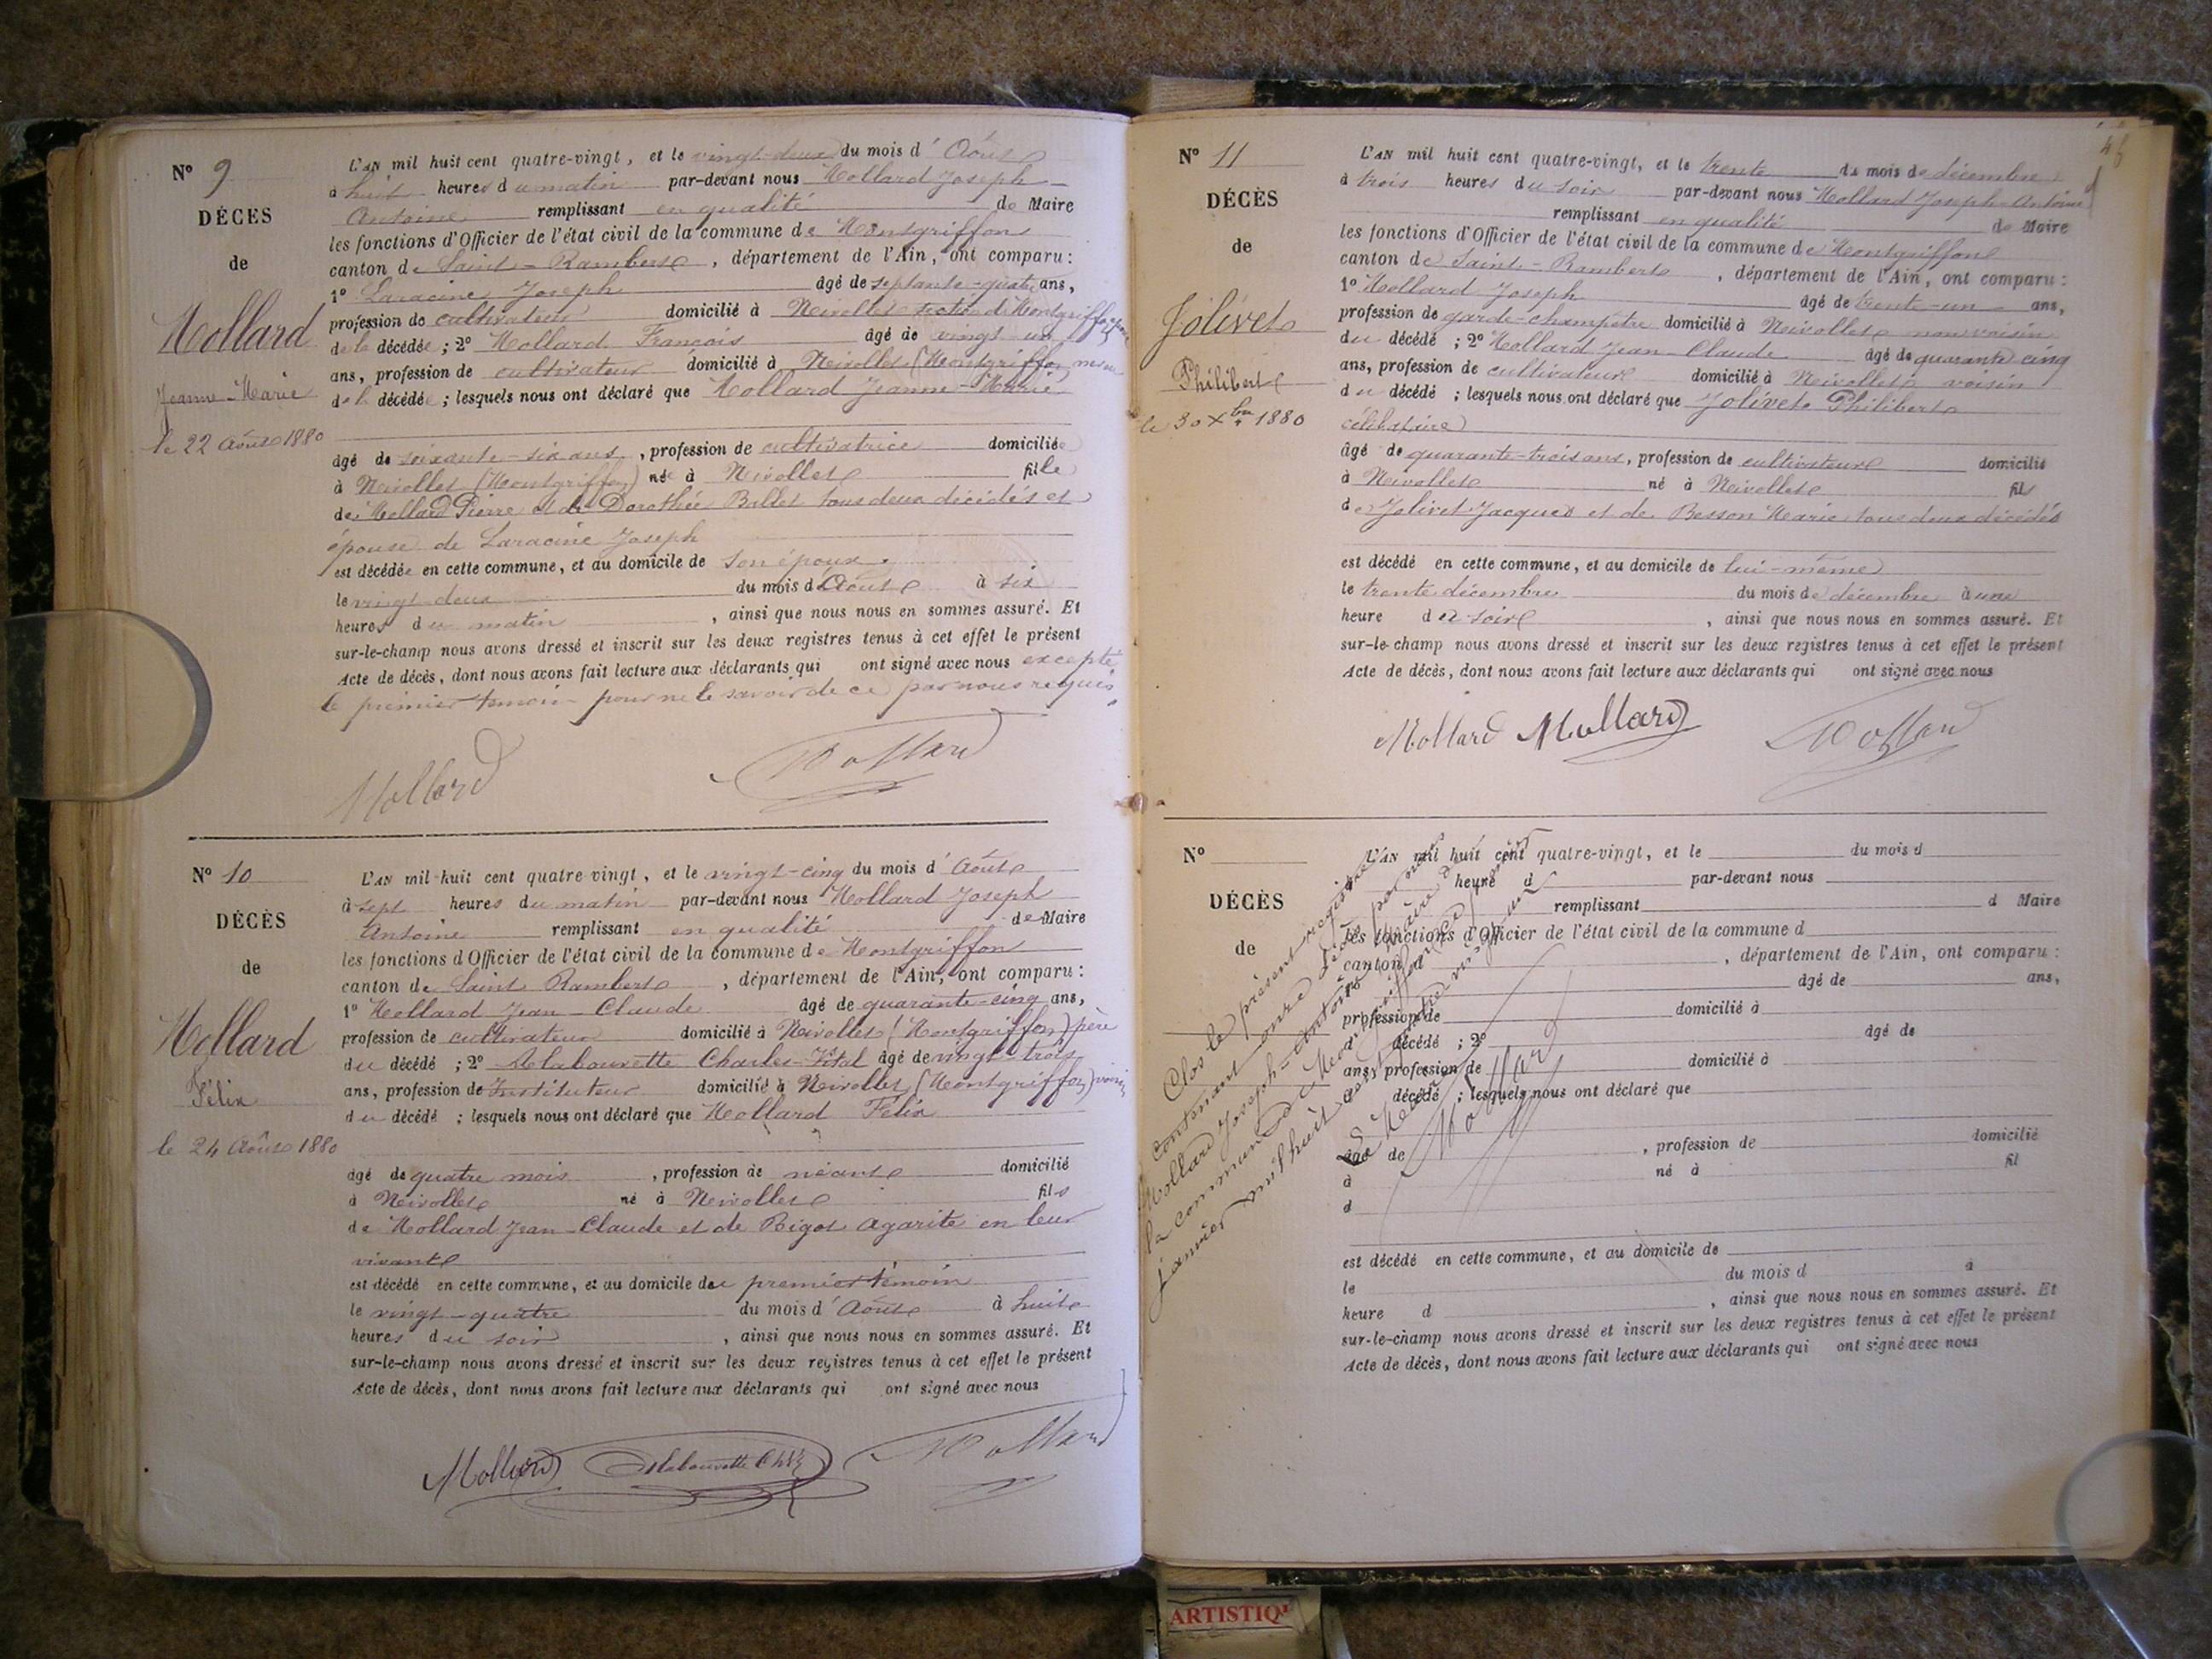 Nº 9
DÉCÈS
de
Mollard
Jeanne-Marie
le 22 Août 1880
L'AN mil huit cent quatre-vingt, et le vingt-deux du mois d'Août
à huit heures du matin par-devant nous Mollard Joseph
Antoine remplissant en qualité de Maire
les fonctions d'Officier de l'état civil de la commune de Montgriffon
canton de Saint-Rambert, département de l'Ain, ont comparu :
1º Laracine Joseph âgé de septante-quatre ans,
profession de cultivateur domicilié à Neivollet section de Montgriffon
de la décédée ; 2º Mollard François âgé de vingt un
ans, profession de cultivateur domicilié à Neivollet (Montgriffon) neveu
de la décédée ; lesquels nous ont déclaré que Mollard Jeanne-Marie
âgé de soixante-six ans, profession de cultivatrice domiciliée
à Neivollet (Montgriffon) née à Neivollet fille
de Mollard Pierre et de Dorothée Ballet tous deux décédés et
épouse de Laracine Joseph
est décédée en cette commune, et au domicile de son époux.
le vingt-deux du mois d'Août à six
heures du matin, ainsi que nous nous en sommes assuré. Et
sur-le-champ nous avons dressé et inscrit sur les deux registres tenus à cet effet le présent
Acte de décès, dont nous avons fait lecture aux déclarants qui ont signé avec nous excepté
le premier témoin pour ne le savoir de ce par nous requis.
Mollard Mollard
Nº 10
DÉCÈS
de
Mollard
Félix
le 24 Août 1880
L'AN mil huit cent quatre-vingt, et le vingt-cinq du mois d'Août
à sept heures du matin par-devant nous Mollard Joseph
Antoine remplissant en qualité de Maire
les fonctions d'Officier de l'état civil de la commune de Montgriffon
canton de Saint Rambert, département de l'Ain, ont comparu :
1º Mollard Jean-Claude âgé de quarante-cinq ans,
profession de cultivateur domicilié à Neivollet (Montgriffon) père
du décédé ; 2º Alabouvette Charles-Vital âgé de vingt-trois
ans, profession de Instituteur domicilié à Neivollet (Montgriffon) voisin
du décédé ; lesquels nous ont déclaré que Mollard Félix
âgé de quatre mois, profession de néant domicilié
à Neivollet né à Neivollet fils
de Mollard Jean-Claude et de Bigot Agarite en leur
vivant
est décédé en cette commune, et au domicile du premier témoin
le vingt-quatre du mois d'Août à huit
heures du soir, ainsi que nous nous en sommes assuré. Et
sur-le-champ nous avons dressé et inscrit sur les deux registres tenus à cet effet le présent
Acte de décès, dont nous avons fait lecture aux déclarants qui ont signé avec nous
Mollard Alabouvette Ch Mollard
Nº 11
DÉCÈS
de
Jolivet
Philibert
le 30 Xbre 1880
L'AN mil huit cent quatre-vingt, et le trente du mois de décembre
à trois heures du soir par-devant nous Mollard Joseph-Antoine
remplissant en qualité de Maire
les fonctions d'Officier de l'état civil de la commune de Montgriffon
canton de Saint-Rambert, département de l'Ain, ont comparu :
1º Mollard Joseph âgé de trente-un ans,
profession de garde-champêtre domicilié à Neivollet non voisin
du décédé ; 2º Mollard Jean-Claude âgé de quarante cinq
ans, profession de cultivateur domicilié à Neivollet voisin
du décédé ; lesquels nous ont déclaré que Jolivet Philibert
célibataire
âgé de quarante-trois ans, profession de cultivateur domicilié
à Neivollet né à Neivollet fils
de Jolivet Jacques et de Besson Marie tous deux décédés
est décédé en cette commune, et au domicile de lui-même
le trente décembre du mois de décembre à une
heure du soir, ainsi que nous nous en sommes assuré. Et
sur-le-champ nous avons dressé et inscrit sur les deux registres tenus à cet effet le présent
Acte de décès, dont nous avons fait lecture aux déclarants qui ont signé avec nous
Mollard Mollard Mollard
Nº
DÉCÈS
de
L'AN mil huit cent quatre-vingt, et le du mois d
heure d par-devant nous
remplissant d Maire
les fonctions d'Officier de l'état civil de la commune d
canton d , département de l'Ain, ont comparu :
âgé de ans,
profession de domicilié à
d décédé ; 2º âgé de
ans, profession de domicilié à
d décédé ; lesquels nous ont déclaré que
âgé de , profession de domicilié
à né à fil
d
est décédé en cette commune, et au domicile de
le du mois d à
heure d , ainsi que nous nous en sommes assuré. Et
sur-le-champ nous avons dressé et inscrit sur les deux registres tenus à cet effet le présent
Acte de décès, dont nous avons fait lecture aux déclarants qui ont signé avec nous
Clos le présent registre
contenant onze décès par nous
Mollard Joseph-Antoine Maire de
la commune de Montgriffon
janvier mil huit cent quatre vingt un
Le Maire
Mollard
ARTISTIQ